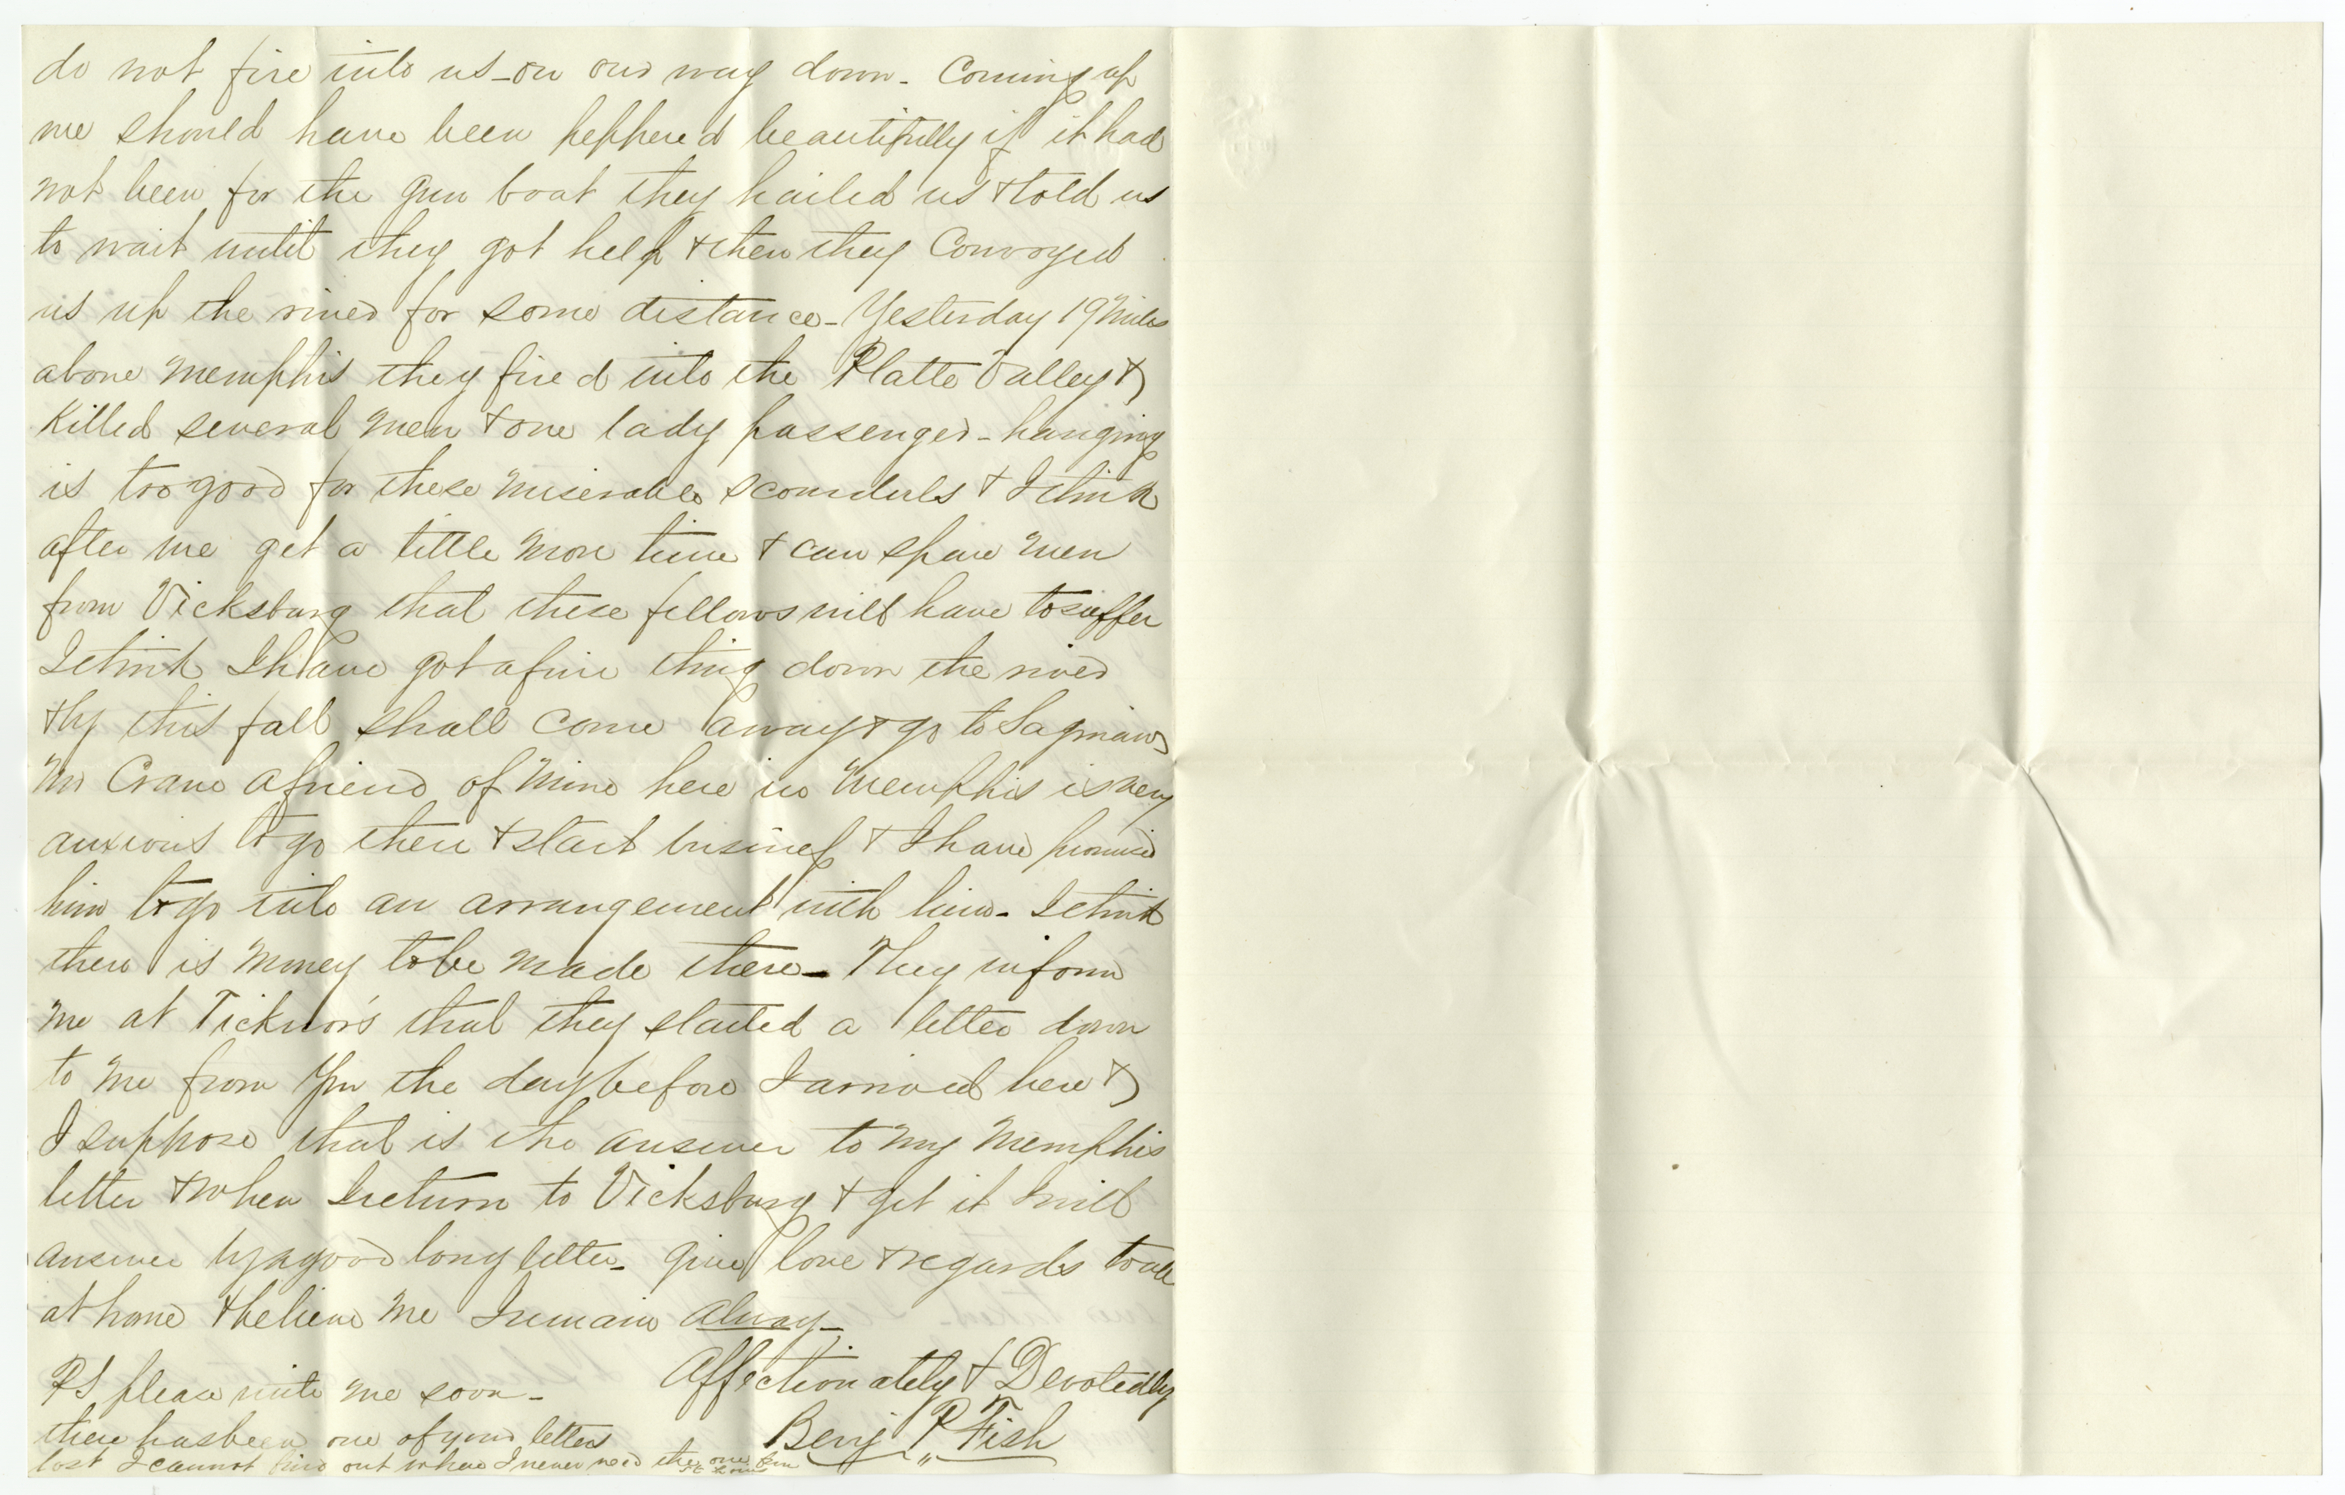 do not fire into us - on our way down - Coming up
we should have been pepphered beautifully if it had
not been for the gun boat they hailed us & told us
to wait until they got help & then they Convoyed
us up the river for some distance - Yesterday 19 miles
above Memphis they fired into the Platte Valley &
killed several men & one lady passenger - hanging
is too good for these miserable scounderls & I think
after we get a little more time & can spare men
from Vicksburg that these fellows will have to suffer
I think I have got a fine thing down the river
& by this fall shall come away & go to Saginaw
Mr Crane a friend of mine here in Memphis is very
anxious to go there & start business & I have promised
him to go into an arrangement with him - I think
there is money to be made there - They inform
me at Ticknor's that they started a letter down
to me from you the day before I arrived here &
I suppose that is the answer to my Memphis
letter & when I return to Vicksburg & get it I will
answer by a good long letter - give love & regards to all
at home & believe me I remain alway -
Affectionately & Devotedly
Benj P Fish
PS please write me soon -
there has been one of your letters
lost I cannot find out where I never recd the one from
St Louis